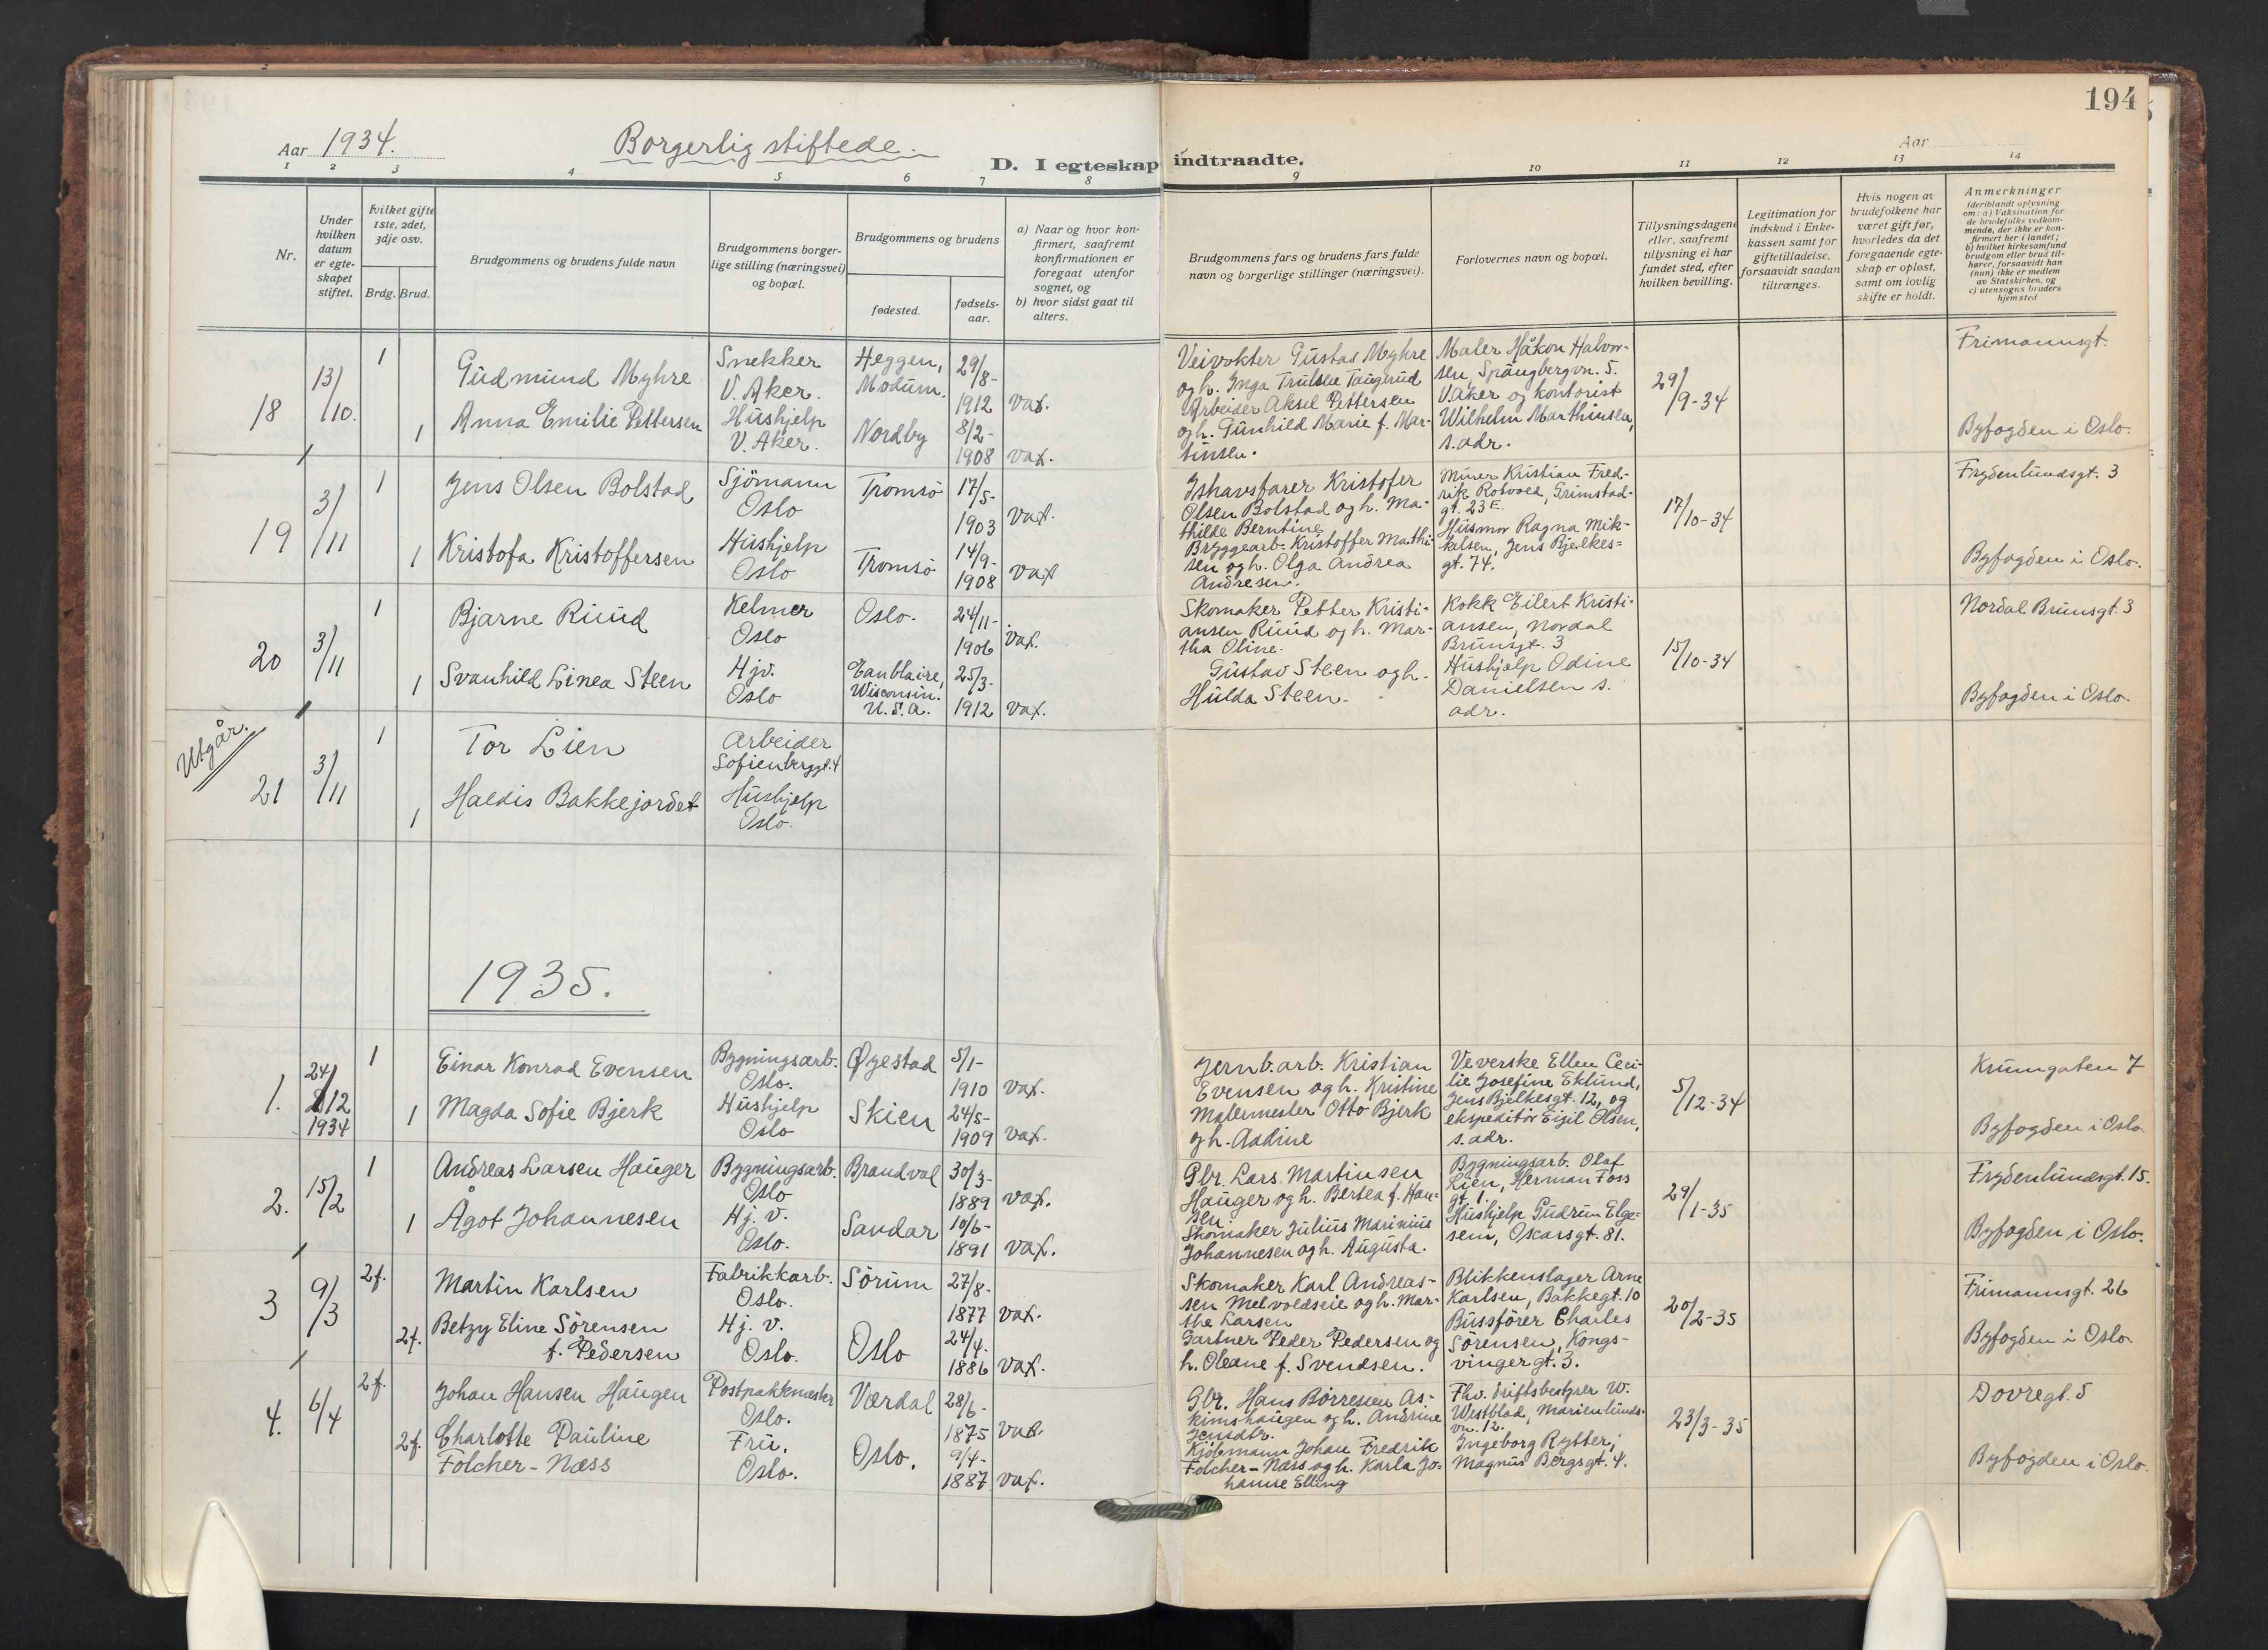 194
Aar 1934.
Borgerlig stiftede.
D. I egteskap indtraadte.
Aar
1 2 3 4 5 6 7 8 9 10 11 12 13 14
Nr.
Under hvilken datum er egte-skapet stiftet.
hvilket gifte 1ste, 2det, 3dje osv.
Brdg. Brud.
Brudgommens og brudens fulde navn
Brudgommens borger-lige stilling (næringsvei) og bopæl.
Brudgommens og brudens
fødested.
fødsels-aar.
a) Naar og hvor kon-firmert, saafremt konfirmationen er foregaat utenfor sognet, og
b) hvor sidst gaat til alters.
Brudgommens fars og brudens fars fulde navn og borgerlige stillinger (næringsvei).
Forlovernes navn og bopæl.
Tillysningsdagene eller, saafremt tillysning ei har fundet sted, efter hvilken bevilling.
Legitimation for indskud i Enke-kassen samt for giftetilladelse, forsaavidt saadan tiltrænges.
Hvis nogen av brudefolkene har været gift før, hvorledes da det foregaaende egte-skap er opløst, samt om lovlig skifte er holdt.
Anmerkninger
(deriblandt oplysning om: a) Vaksination for de brudefolks vedkom-mende, der ikke er kon-firmert her i landet; b) hvilket kirkesamfund brudgom eller brud til-hører, forsaavidt han (hun) ikke er medlem av Statskirken, og c) utensogns bruders hjemsted
18
13/10.
1
Gudmund Myhre
Snekker
V. Aker.
Heggen,
Modum.
29/8-
1912
vax.
1
Anna Emilie Pettersen
Hushjelp
V. Aker.
Nordby
8/2-
1908
vax.
Veivokter Gustav Myhre
og h. Inga Trulsen Taugerud
Arbeider Aksel Pettersen
og h. Gunhild Marie f. Mar-
tinsen.
Maler Håkon Halvor-
sen, Spångbergvn. 5.
V. Aker og kontorist
Wilhelm Marthinsen,
s. adr.
29/9-34
Frimannsgt.
Byfogden i Oslo.
19
3/11
1
Jens Olsen Bolstad
Sjömann
Oslo
Tromsö
17/5-
1903
vax.
1
Kristofa Kristoffersen
Hushjelp
Oslo
Tromsö
14/9-
1908
vax
Ishavsfarer Kristofer
Olsen Bolstad og h. Ma-
thilde Berntine
Bryggearb. Kristoffer Mathi-
sen og h. Olga Andrea
Andresen.
Murer Kristian Fred-
rik Rotvold, Grimstad-
gt. 23 E.
Husmor Ragna Mik-
kelsen, Jens Bjelkes-
gt. 74.
17/10-34
Frydenlundsgt. 3
Byfogden i Oslo.
20
3/11
1
Bjarne Ruud
Kelner
Oslo
Oslo.
24/11-
1906
vax.
1
Svanhild Linea Steen
Hjv.
Oslo
Eanblaire,
Wisconsin.
U.S.A.
25/3-
1912
vax.
Skomaker Petter Kristi-
ansen Ruud og h. Mar-
tha Oline.
Gustav Steen og h.
Hulda Steen.
Kokk Eilert Kristi-
ansen, Nordal
Brunsgt. 3
Hushjelp Odine
Danielsen s.
adr.
15/10-34
Nordal Brunsgt. 3
Byfogden i Oslo.
Utgår.
21
3/11
1
Tor Lien
Arbeider
Sofienberggt. 4
1
Haldis Bakkejordet
Hushjelp
Oslo.
1935.
1.
24/12
1934
1
Einar Konrad Evensen
Bygningsarb.
Oslo.
Øyestad
5/1-
1910
vax.
1
Magda Sofie Bjerk
Hushjelp
Oslo
Skien
24/5-
1909
vax.
Jernb.arb. Kristian
Evensen og h. Kristine
Malermester Otto Bjerk
og h. Aadine
Veverske Ellen Ceci-
lie Josefine Eklund,
Jens Bjelkesgt. 12, og
ekspeditör Eigil Olsen,
s. adr.
5/12-34
Krumgaten 7
Byfogden i Oslo.
2.
15/2
1
Andreas Larsen Hauger
Bygningsarb.
Oslo
Brandval
30/3-
1889
vax.
1
Ågot Johannesen
Hj. v.
Oslo.
Sandar
10/6-
1891
vax.
Gbr. Lars Martinsen
Hauger og h. Bertea f. Han-
sen.
Skomaker Julius Marinius
Johannesen og h. Augusta.
Bygningsarb. Olaf
Lien, Herman Foss
gt. 1.
Hushjelp Gudrun Elge-
sem, Oscarsgt. 81.
29/1-35
Frydenlundsgt. 15.
Byfogden i Oslo.
3
9/3
2f.
Martin Karlsen
Fabrikkarb.
Oslo.
Sörum
27/8-
1877
vax.
2f.
Betzy Eline Sörensen
f. Pedersen
Hj. v.
Oslo.
Oslo
24/4.
1886
vax.
Skomaker Karl Andreas-
sen Melvoldseie og h. Mar-
the Larsen
Gartner Peder Pedersen og
h. Oleane f. Svendsen.
Blikkenslager Arne
Karlsen, Bakkegt. 10
Bussförer Charles
Sörensen, Kongs-
vingergt. 3.
20/2-35
Frimannsgt. 26
Byfogden i Oslo.
4.
6/4
2f.
Johan Hansen Haugen
Postpakkmester
Oslo.
Værdal
28/6-
1875
vax.
2f.
Charlotte Pauline
Folcher-Næss
Fru.
Oslo.
Oslo.
9/4-
1887
vax.
Gbr. Hans Börresen As-
kimshaugen og h. Andrine
Jensdtr.
Kjöbmann Johan Fredrik
Folcher-Næss og h. Karla Jo-
hanne Elling
Fhv. driftsbestyrer W.
Westblad, Marienlunds-
vn. 12.
Ingeborg Rytter,
Magnus Bergsgt. 4.
23/3-35
Dovregt. 5
Byfogden i Oslo.